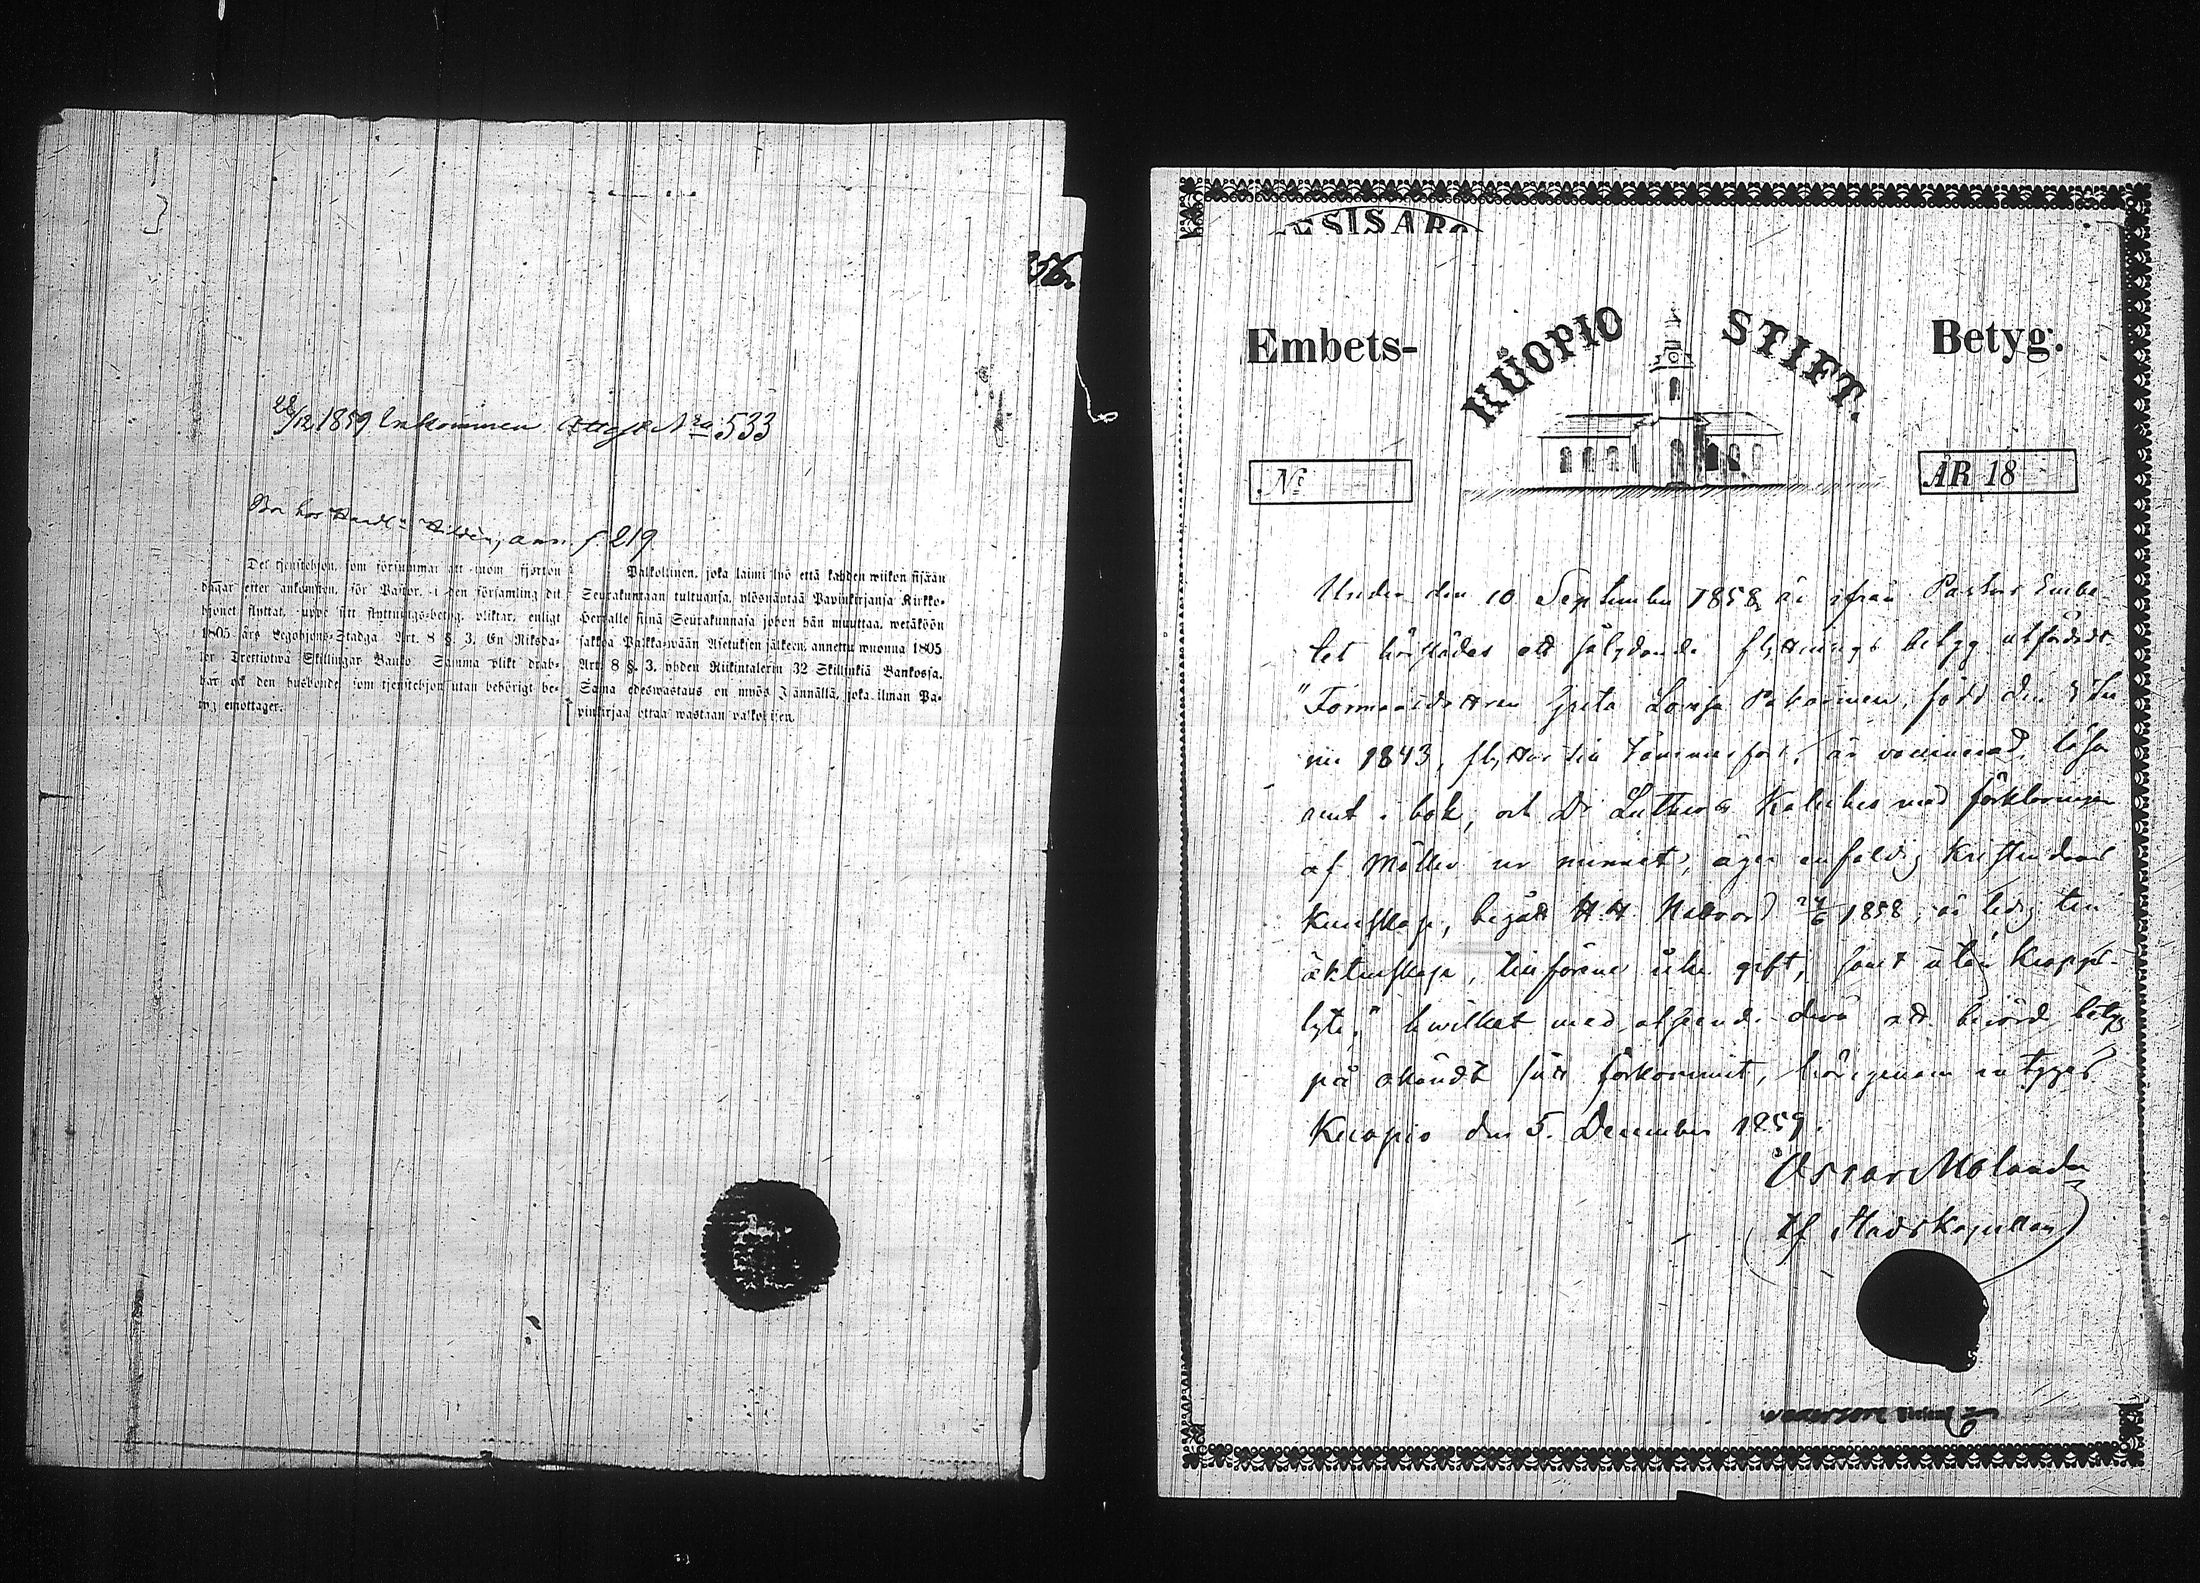 56.
28/12 1859 Inkommen Attest Nro 533
Bor hos Handl: Hildén, ann. f. 219
Det tjenstehjon, som försummar att inom fjorton
dagar efter ankomsten, för Pastor, i den församling dit
hjonet flyttat, uppte sitt flyttnings-betyg, pliktar, enligt
1805 års Legohjons-Stadga Art. 8 §. 3. En Riksda-
ler Trettiotwå Skillingar Banko. Samma plikt drab-
bar ock den husbonde, som tjenstehjon utan behörigt be-
tyg emottager.
Palkollinen, joka laimi lyö että kahden wiikon sisään
Seurakuntaan tultuansa, ylösnäyttää Papinkirjansa Kirkko-
herralle siinä Seurakunnasa johon hän muuttaa, wetäköön
sakkoa Palkka-wään Asetuksen jälkeen, annettu wuonna 1805
Art. 8 §. 3. yhden Riikintalerin 32 Skillinkiä Bankossa.
Sama edeswastaus on myös Isännällä, joka ilman Pa-
pinkirjaa ottaa wastaan palkolisen.
ESISAR
Embets-
KUOPIO STIFT.
Betyg.
No
ÅR 18
Under den 10 September 1858, är ifrån Pastors Embe-
tet härstädes ett sålydande flyttnings betyg utfärdadt
"Formansdottren Greta Lovisa Pakarinen, född den
1843, flyttar till Tammerfors, är vaccinerad, läser
rent i bok, och Dr Luthers Kateches med förklaringen
af Möller ur minnet, äger enfaldig Kristendoms
Kunskap, begått H. H. Nattvard 24/6 1858, är ledig till
äktenskap, tillförene icke gift, samt utan kropps-
lyte," hwilket med afseende derå att berörde betyg
på okändt sätt förkommit, härigenom intygas
Kuopio den 5. December 1859.
Oscar Molander
tf Stadskapellan